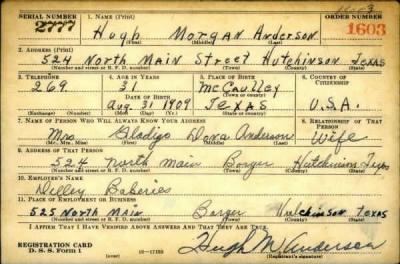 SERIAL NUMBER 1. NAME (Print) ORDER NUMBER
2777 Hugh Morgan Anderson 1603
(First) (Middle) (Last)
2. ADDRESS (Print)
524 North Main Street Hutchinson Texas
(Number and street or R. F. D. number) (Town) (County) (State)
3. TELEPHONE 4. AGE IN YEARS 5. PLACE OF BIRTH 6. COUNTRY OF CITIZENSHIP
269 31 McCaulley
DATE OF BIRTH (Town or county)
Aug 31 1909 Texas U.S.A.
(Exchange) (Number) (Mo.) (Day) (Yr.) (State or country)
7. NAME OF PERSON WHO WILL ALWAYS KNOW YOUR ADDRESS 8. RELATIONSHIP OF THAT PERSON
Mrs Dora Anderson Wife
(Mr., Mrs., Miss) (First) (Middle) (Last)
9. ADDRESS OF THAT PERSON
524 North Main Borger Hutchinson Texas
(Number and street or R. F. D. number) (Town) (County) (State)
10. EMPLOYER'S NAME
Dilley Bakeries
11. PLACE OF EMPLOYMENT OR BUSINESS
525 North Main Borger Hutchinson Texas
(Number and street or R. F. D. number) (Town) (County) (State)
I AFFIRM THAT I HAVE VERIFIED ABOVE ANSWERS AND THAT THEY ARE TRUE.
REGISTRATION CARD
D. S. S. Form 1 (over) Hugh M Anderson
(Registrant's signature)